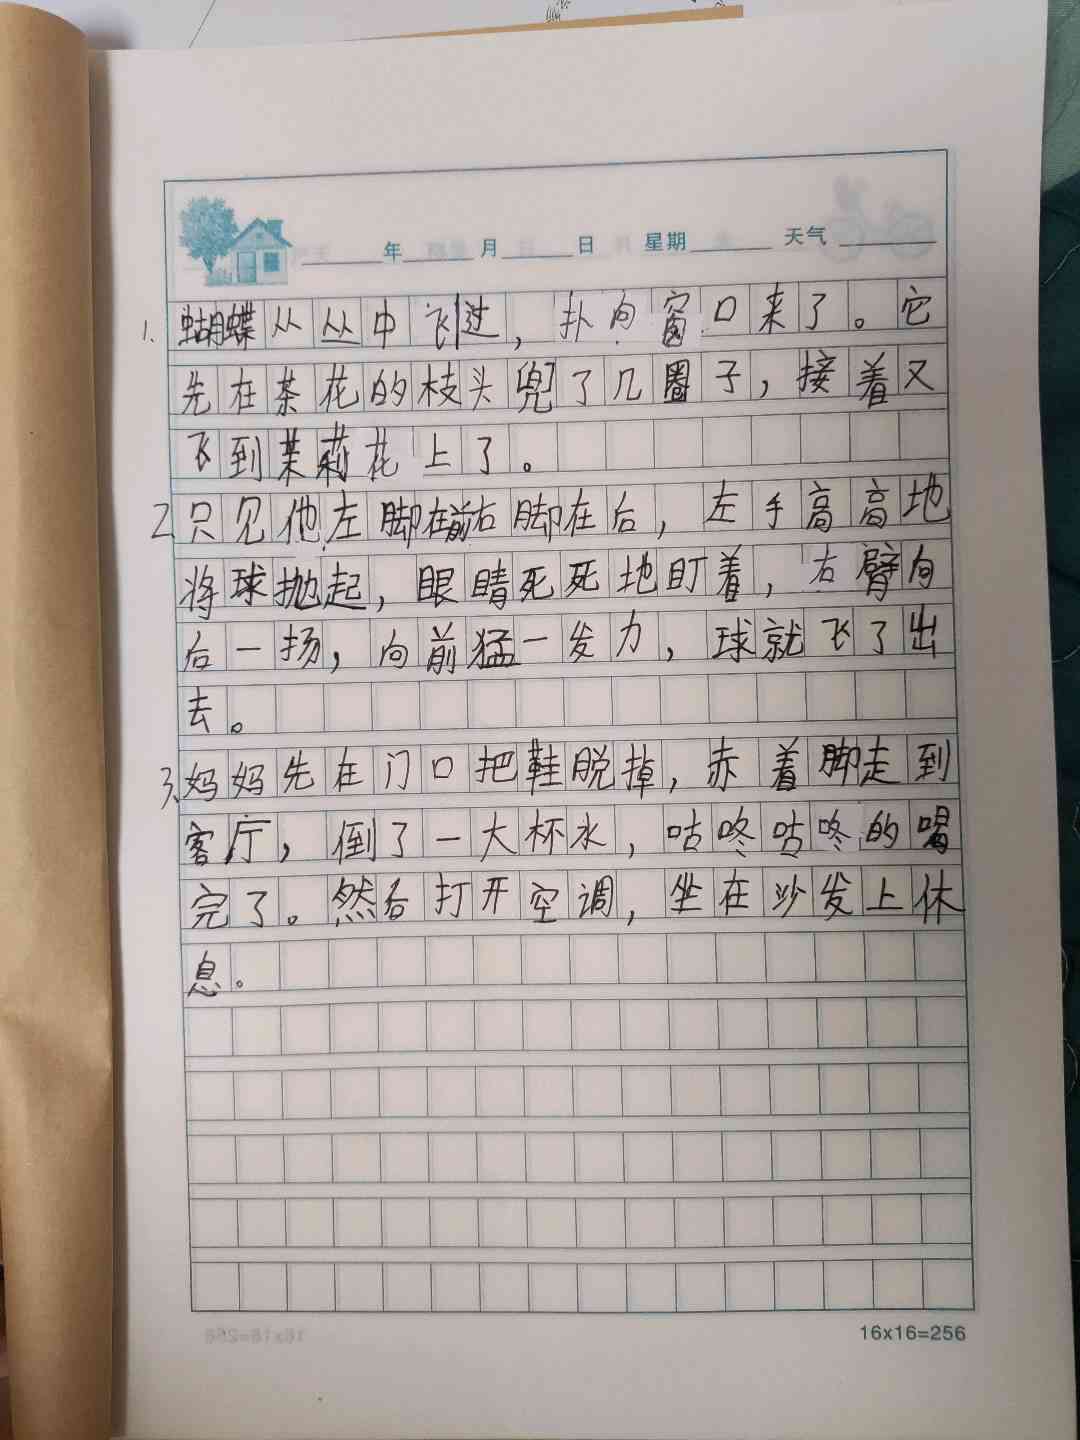 年 月 日 星期 天气
1. 蝴蝶从丛中飞过，扑向窗口来了。它
先在茶花的枝头兜了几圈子，接着又
飞到茉莉花上了。
2. 只见他左脚在前右脚在后，左手高高地
将球抛起，眼睛死死地盯着，右臂向
后一扬，向前猛一发力，球就飞了出
去。
3. 妈妈先在门口把鞋脱掉，赤着脚走到
客厅，倒了一大杯水，咕咚咕咚的喝
完了。然后打开空调，坐在沙发上休
息。
16x16=256